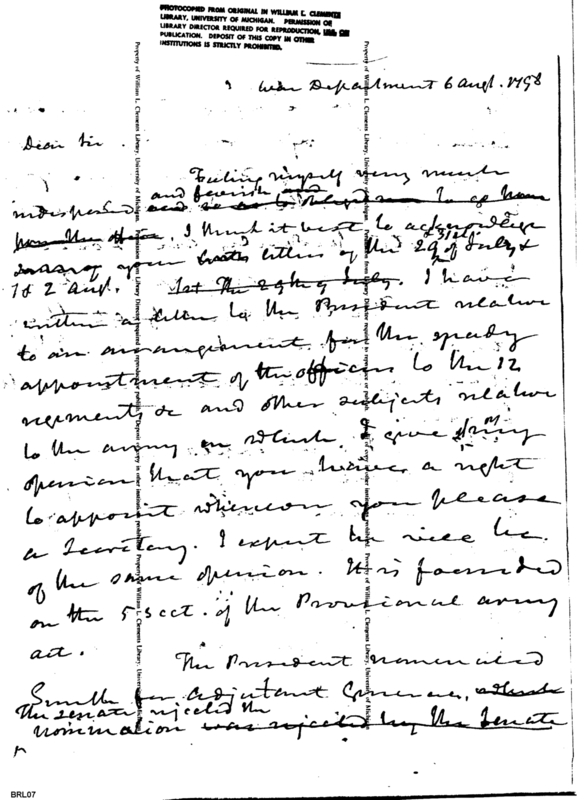 PHOTOCOPIED FROM ORIGINAL IN WILLIAM L. CLEMENTS
LIBRARY, UNIVERSITY OF MICHIGAN. PERMISSION OF
LIBRARY DIRECTOR REQUIRED FOR REPRODUCTION, USE OR
PUBLICATION. DEPOSIT OF THIS COPY IN OTHER
INSTITUTIONS IS STRICTLY PROHIBITED.
War Department 6 augt. 1798
Dear Sir
Feeling myself very much
and feverish and
indisposed and so as to obliged me to go home
from the office, I think it best to acknowledge
your letters of the 29 31st of July &
1 & 2 augt. 1st The 29th of July. I have
written a letter to the President relative
to an arrangement for the speedy
appointment of the officers to the 12
regiments &c and other subjects relative
to the army in which I give it as my
opinion that you have a right
to appoint whenever you please
a Secretary. I expect he will be
of the same opinion. It is founded
on the 5 sect. of the Provisional army
act.
The President nominated
Smith for adjutant General, which
the senate rejected the
nomination was rejected by the Senate
Property of William L. Clements Library, University of Michigan
BRL07